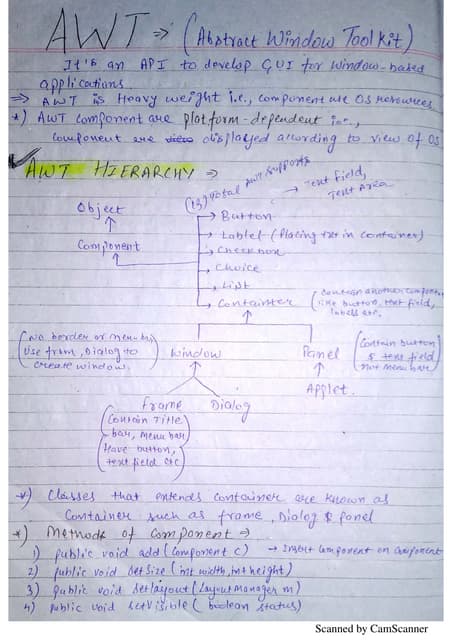 AWT ⇒ (Abstract Window Toolkit)
It's an API to develop GUI for window-based
applications.
⇒ AWT is Heavy weight i.e., component use OS resources
*) AWT component are platform-dependent i.e.,
component are displayed according to view of OS
AWT HIERARCHY ⇒
(13) Total AWT supports
→ Text field,
Text Area
Object
Component
→ Button
→ Lablel (Placing txt in container)
→ Checkbox
→ Choice
→ List
→ Container
(contain another component
like button, text field,
labels etc.)
(No border or menu bar
Use frame, Dialog to
create window.)
Window
Panel
(Contain button
& text field
not menu bar)
Applet.
Frame
Dialog
(Contain Title
bar, Menu bar
Have button,
text field etc)
*) Classes that extends container are known as
Container such as frame, Dialog & Panel
*) Methods of Component ⇒
1) public void add (Component c) → Insert component on component
2) public void setSize (int width, int height)
3) public void setLayout (Layout Manager m)
4) public void setVisible (boolean status)
Scanned by CamScanner